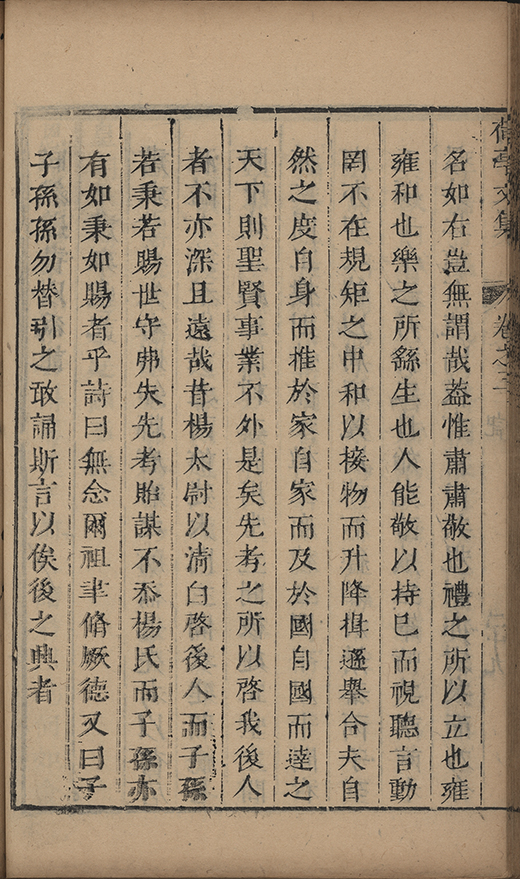 荷亭文集　卷之
名如右豈無謂哉葢惟肅肅敬也禮之所以立也雍
雍和也樂之所繇生也人能敬以持已而視聽言動
罔不在規矩之中和以接物而升降揖遜舉合夫自
然之度自身而推於家自家而及於國自國而達之
天下則聖賢事業不外是矣先考之所以啓我後人
者不亦深且遠哉昔楊太尉以清白啓後人而子孫
若秉若賜世守弗失先考貽謀不忝楊氏而子孫亦
有如秉如賜者乎詩曰無念爾祖聿脩厥德又曰子
子孫孫勿替引之敢誦斯言以俟後之興者